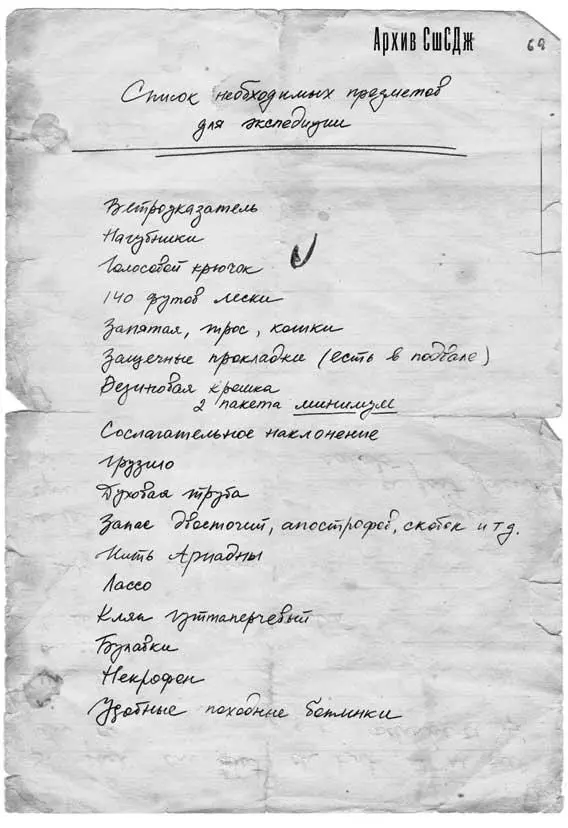 Архив СшСДж
69
Список необходимых предметов
для экспедиции
Ветроуказатель
Нагубники
Голосовой крючок
140 футов лески
Запятая, трос, кошки
Защечные прокладки (есть в подвале)
Резиновая крошка
2 пакета минимум
Сослагательное наклонение
Грузило
Духовая труба
Запас двоеточий, апострофов, скобок и т.д.
Нить Ариадны
Лассо
Кляп гуттаперчевый
Булавки
Некрофон
Удобные походные ботинки